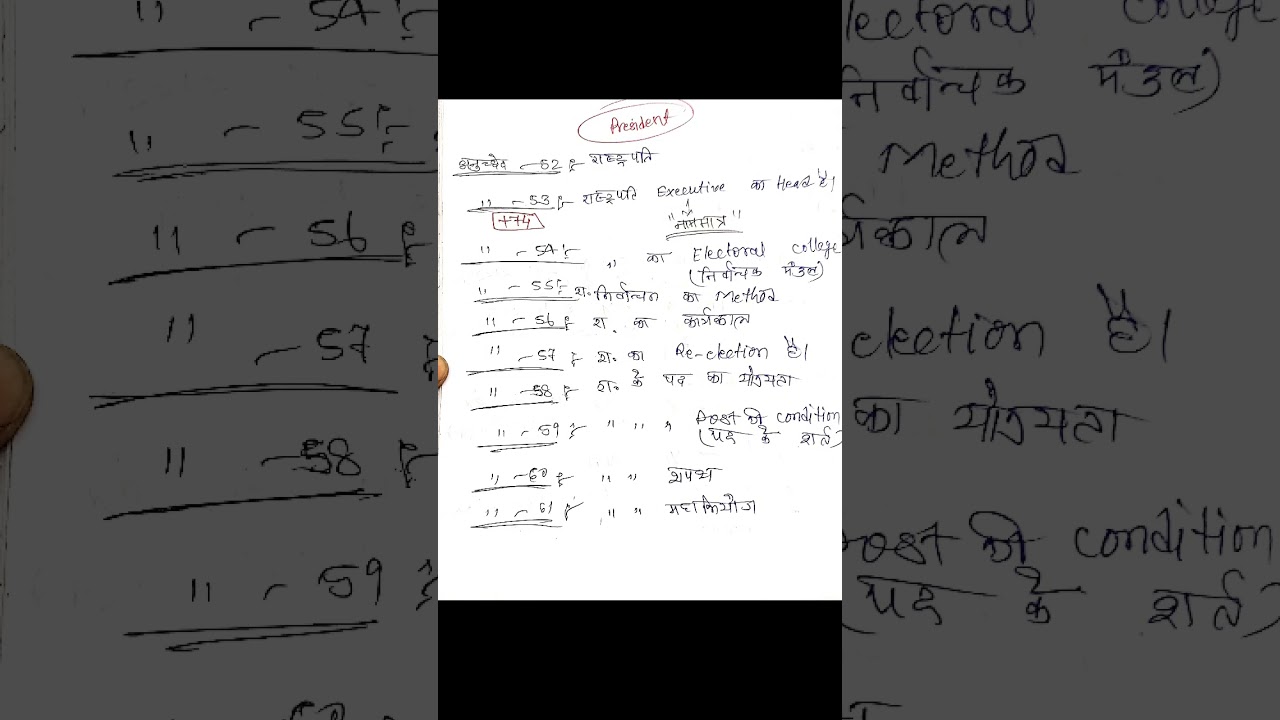 President
अनुच्छेद - 52 राष्ट्रपति
" - 53 राष्ट्रपति Executive का Head है।
+74 "नाममात्र"
" - 54 " का Electoral college
(निर्वाचक मंडल)
" - 55 रा. निर्वाचन का Method
" - 56 रा. का कार्यकाल
" - 57 रा. का Re-election है।
" - 58 रा. के पद का योग्यता
" - 59 " " " Post की condition
(पद के शर्त)
" - 60 " " शपथ
" - 61 " " महाभियोग